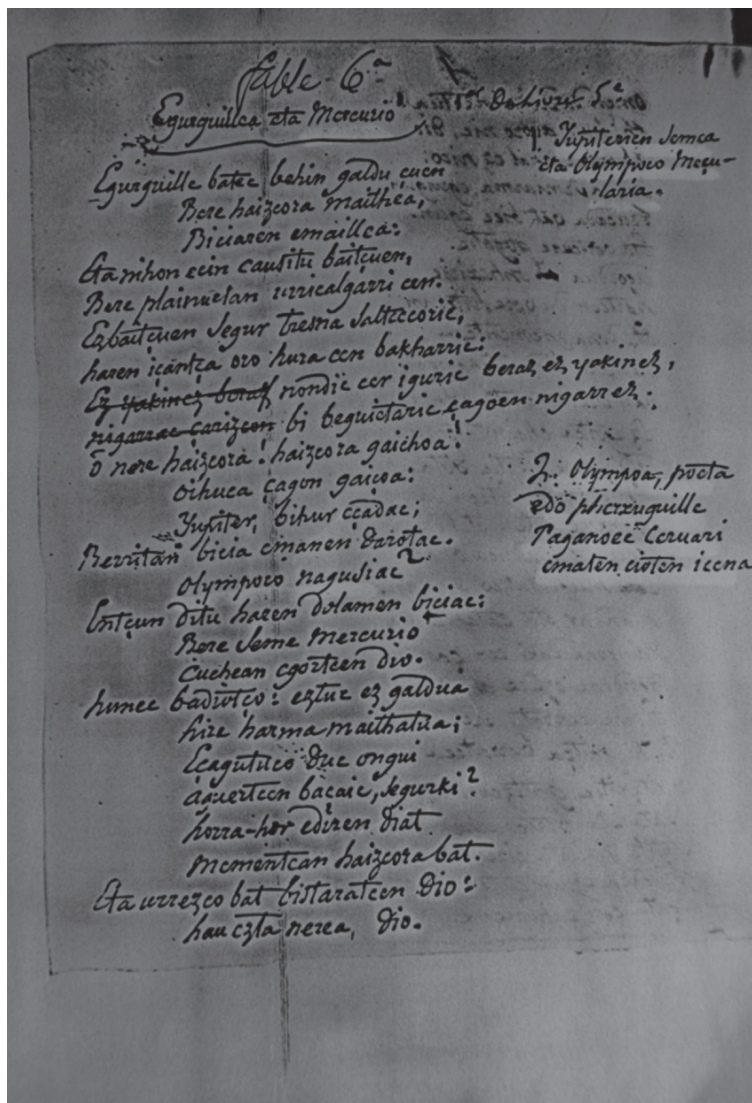 fable 6.a
Egurguillea eta Mercurio
1. Jupiterien semea
eta Olympoco Meçu-
laria.
Egurguille batec behin galdu çuen
Bere haizcora maithea,
Biciaren emaillea:
Eta nihon ecin causitu baitçuen,
Bere plainuetan urricalgarri cen.
Ezbaitçuen segur tresna saltzecoric,
haren içantça oro hura cen bakharric:
Ez yakinez beraz nondic cer iguric beraz ez yakinez,
nigarrac çarizcon bi beguietaric çagoen nigarrez.
ô nere haizcora! haizcora gaichoa!
oihuca çagon gaiçoa:
Jupiter, bihur ççadac;
Berritan bicia emanen darotac.
Olympoco nagusiac 2
Entçun ditu haren dolamen biciac:
Bere seme Mercurio
Cuchean egortcen dio.
hunec badiotço: eztuc ez galdua
hire harma maithatua;
Eçagutuco duc ongui
aguertcen baçaic, segurki?
horra-hor ediren diat
Mementean haizcora bat.
Eta urrezco bat bistaratcen dio:
hau ezta nerea, dio.
2. Olympoa, poeta
edo pherxuguille
Paganoec Ceruari
ematen cioten icena